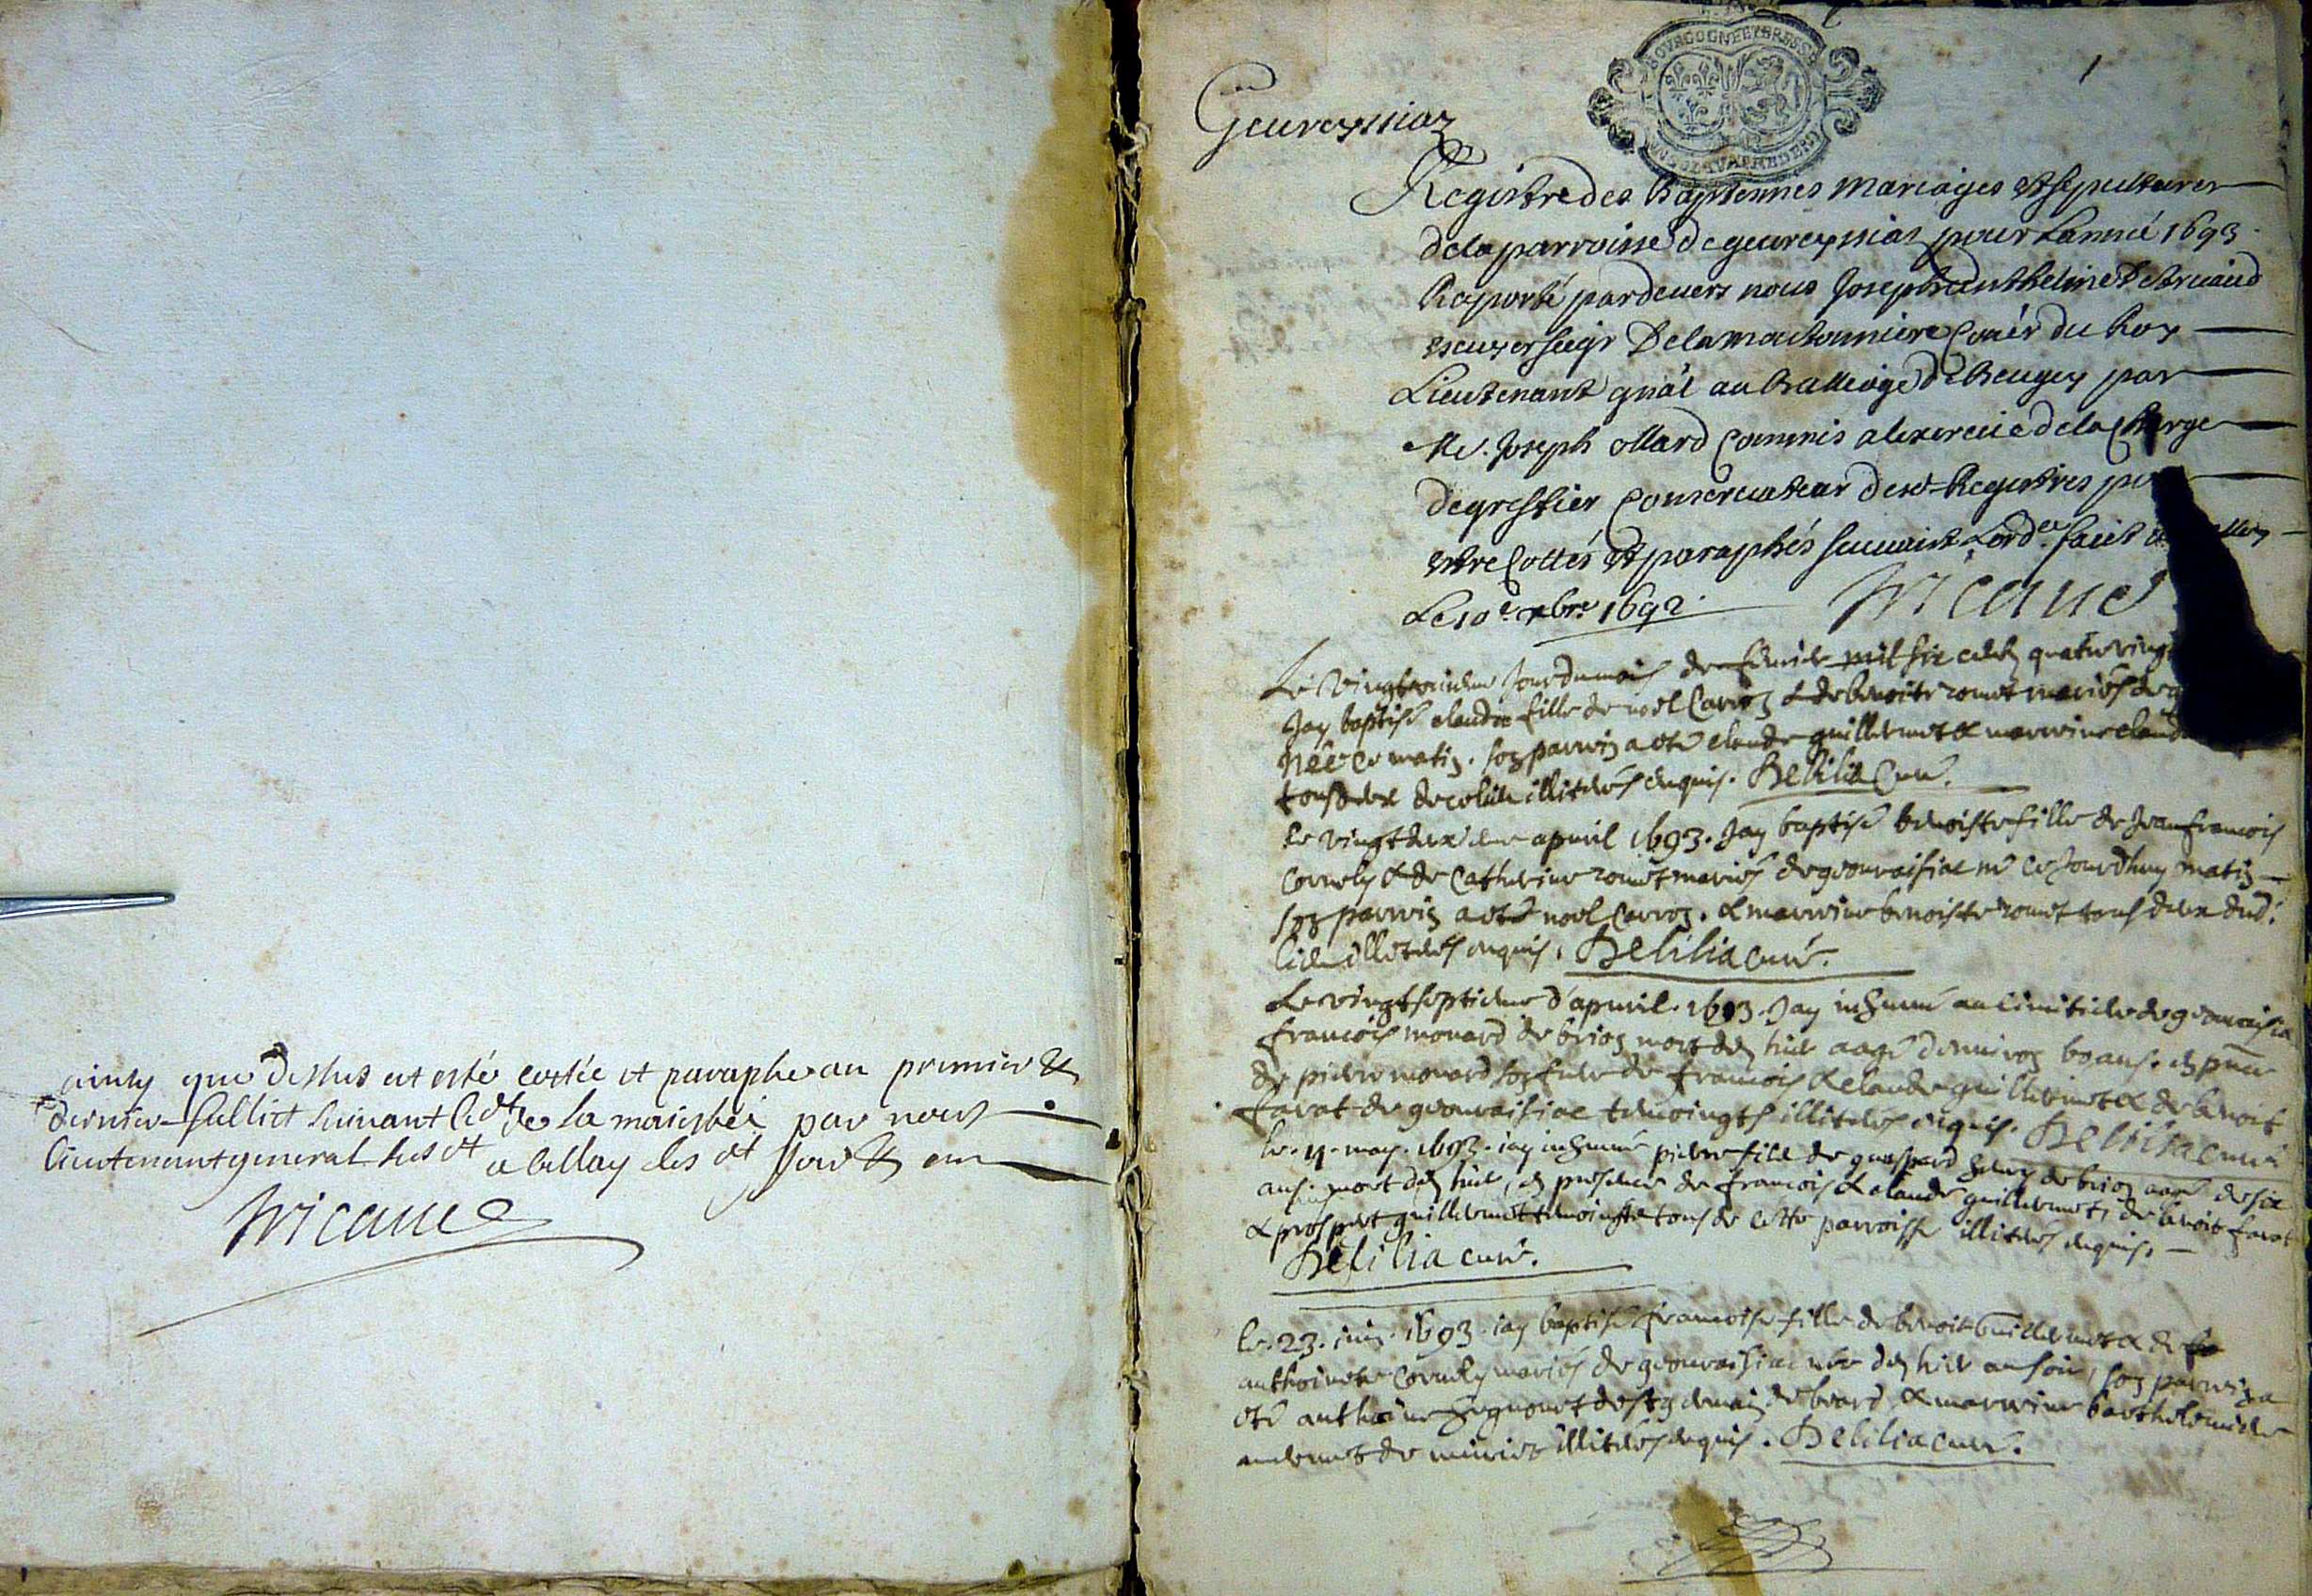 ainsy que dessus at esté cottée et paraphe au premier &
dernier fulliet suivant led^t de sa maiesteé par nous
lieutenant general susd^t a bellay les d^t jour & an
BOVRGOGNE ET BRESSE
1
Geureyssiaz
Registre des Baptesmes Mariages et sepultures
de la parroisse de geureyssiaz pour Lanneé 1693
Raporté pardeuers nous Joseph anthelme
escuyer seigr De la Con.er du Roy
Lieutenant gnâl au Balliage de Beugey par
Me. Joseph ollard Commis a lexercice de la Charge
de greffier Conseruateur desd. Registres
estre Cottés et paraphés suiuant Lord.ce fait a
Le 10.e xbre 1692.
Le jour du mois de mil six cents quatre vingt
Jay baptisé claudine fille de noël Carroz & de benoite romet mariés de
néé ce matin. son parrin a eté claude guillermet & marrine claud
tous deux de ce lieu illiterés enquis. Delilia Curé.
le vingt deuxieme apuril 1693. Jay baptisé benoiste fille de Jean francois
Cornely & de Catherine romet mariés de geouraisiac né ce Jourdhuy matin
son parrin a eté noel Carroz. & marrine benoiste romet tous deux dud.
lieu illiterés enquis. Delilia curé.
Le vingt septieme d'apuril. 1693. Jay inhumé au cimitiere de geouraisia
francois monard de brion mort den hier aagé denuiron 60 ans. en pnce
de pierre monard son frere de francois & claude guillermet & de benoit
farat de geouraisiac temoingts illiterés enquis. Delilia curé
le. 4. may. 1693. iay inhumé pierre fils de gaspard de brion aagé de six
ans. mort den hier, en presence de francois & claude guillermet, de benoit farat
& prospert guillermet temoingts tous de cette parroisse illiterés enquis.
Delilia curé.
le. 23. iuin. 1693. iay baptisé francoise fille de benoit Guillermet & de
anthoinete Cornely mariés de geouraisiac née den hier au soir, son parrin a
eté anthoine de st germain de beard & marrine bartholomiere
de illiterés enquis. Delilia curé.